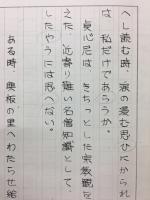 へし読む時、涙の凄む思ひにかられ
は、私だけであらうか。
貞心尼は、きちっとした宗教観を
えた、近寄り難い名僧知識として、
したやうには思へない。
ある時、奥板の里へわたらせ給